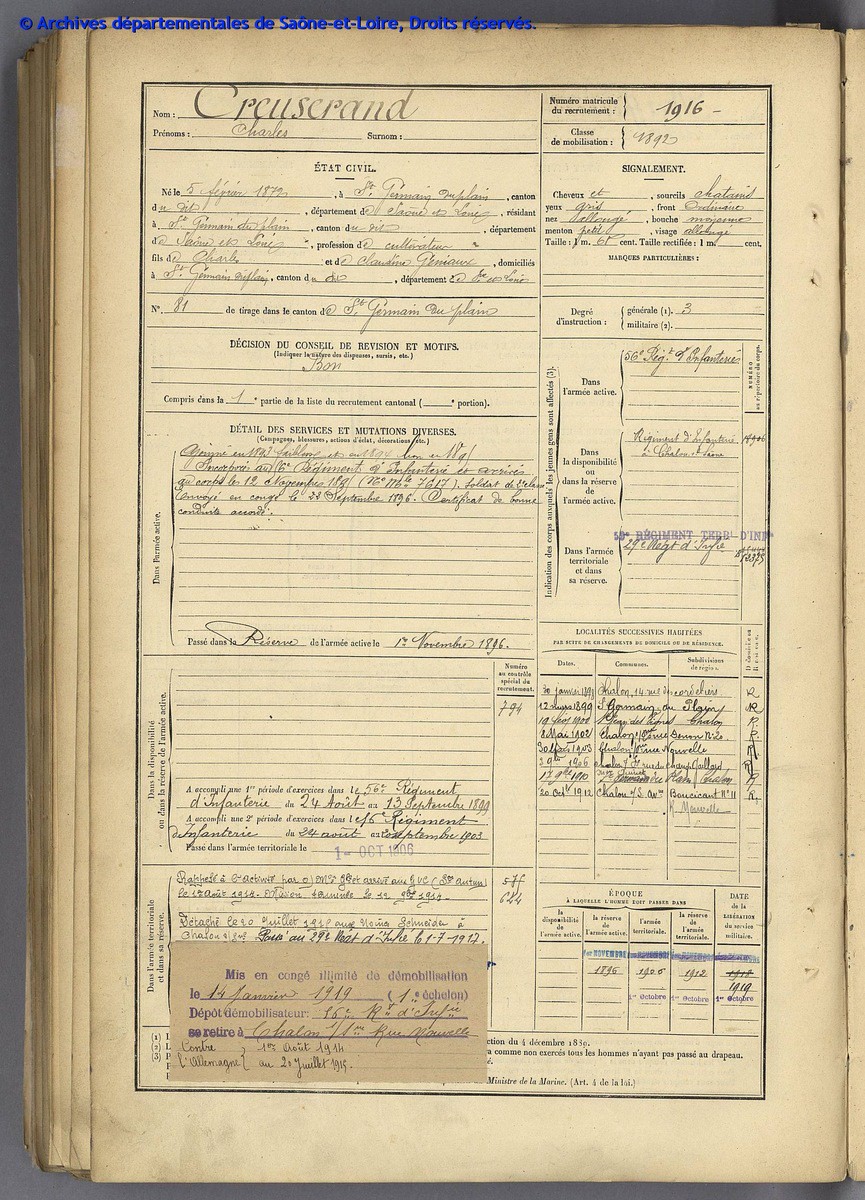 © Archives départementales de Saône-et-Loire, Droits réservés.
Nom : Creuserand
Prénoms : Charles Surnom :
Numéro matricule du recrutement : 1916
Classe de mobilisation : 1892
ÉTAT CIVIL.
Né le 5 février 1872, à St Germain du plain, canton
du dit, département de Saône et Loire, résidant
à St Germain du plain, canton du dit, département
de Saône et Loire, profession de cultivateur
fils de Charles et de Claudine Géniaux, domiciliés
à St Germain du plain, canton du dit, département de Sne et Loire
N° 81 de tirage dans le canton de St Germain du plain
SIGNALEMENT.
Cheveux et sourcils chatains
yeux gris, front Ordinaire
nez allongé, bouche moyenne
menton petit, visage allongé
Taille : 1 m. 61 cent. Taille rectifiée : 1 m. cent.
MARQUES PARTICULIÈRES :
Degré d'instruction : générale (1). 3
militaire (2).
DÉCISION DU CONSEIL DE REVISION ET MOTIFS.
(Indiquer la nature des dispenses, sursis, etc.)
Bon
Compris dans la 1e partie de la liste du recrutement cantonal ( portion).
DÉTAIL DES SERVICES ET MUTATIONS DIVERSES.
(Campagnes, blessures, actions d'éclat, décorations, etc.)
Dans l'armée active.
Ajourné en 1893 et en 1894 bon en 189
Incorporé au Régiment d'Infanterie et arrivé
au corps le 12 Novembre 189 (No Mle 7617). Soldat de 2e classe
Envoyé en congé le 22 Septembre 1896. Certificat de bonne
conduite accordé.
Passé dans la Réserve de l'armée active le 1er Novembre 1896.
Indication des corps auxquels les jeunes gens sont affectés (3).
NUMÉRO au répertoire du corps.
Dans l'armée active.
56e Régt d'Infanterie
Dans la disponibilité ou dans la réserve de l'armée active.
Régiment d'Infanterie
à Chalon s/ Saône
Dans l'armée territoriale et dans sa réserve.
RÉGIMENT TERRal D'INFie
29e Régt d'Infie
LOCALITÉS SUCCESSIVES HABITÉES
PAR SUITE DE CHANGEMENTS DE DOMICILE OU DE RÉSIDENCE.
Dates. Communes. Subdivisions de région. Domicile ou Résidence.
30 janvier 1898 Chalon, 14 rue des cordeliers R
12 mars 1899 St Germain du Plain R
1902 St Jean des Vignes Chalon R
8 Mai 1902 Chalon rue Denon N° 20 R
1903 Chalon rue Nouvelle R
1906 Chalon rue du Champ Gaillard R
1910 Chalon R
20 Oct 1912 Chalon s/S. Boucicaut N° 11 R
R. Nouvelle
Numéro au contrôle spécial du recrutement.
794
Dans la disponibilité ou dans la réserve de l'armée active.
A accompli une 1re période d'exercices dans le 56e Régiment
d'Infanterie du 24 Août au 13 Septembre 1899
A accompli une 2e période d'exercices dans le 56e Régiment
d'Infanterie du 24 août au septembre 1903
Passé dans l'armée territoriale le 1er OCT 1906
Dans l'armée territoriale et dans sa réserve.
Rappelé à l'activité par O) Mon Gle et arrivé aux GVC (Son Autun)
le 1er août 1914. Mission terminée le 12 9bre 1914
Détaché le 20 Juillet 1915 aux Usines Schneider à
Chalon s/ Sne. Passé au 29e Régt d'Infie le 1-7-1917.
644
Mis en congé illimité de démobilisation
le 14 Janvier 1919 (1er échelon)
Dépôt démobilisateur: 56e Rt d'Infie
se retire à Chalon s/ Sne Rue Nouvelle
Contre } 1er Août 1914
l'Allemagne } au 20 Juillet 1915.
ÉPOQUE
À LAQUELLE L'HOMME DOIT PASSER DANS
DATE de la LIBÉRATION du service militaire.
la disponibilité de l'armée active. la réserve de l'armée active. l'armée territoriale. la réserve de l'armée territoriale.
1er NOVEMBRE
1896 1906 1912 1918
1919
1er Octobre 1er Octobre 1er Octobre
ction du 4 décembre 1889.
a comme non exercés tous les hommes n'ayant pas passé au drapeau.
Ministre de la Marine. (Art. 4 de la loi.)